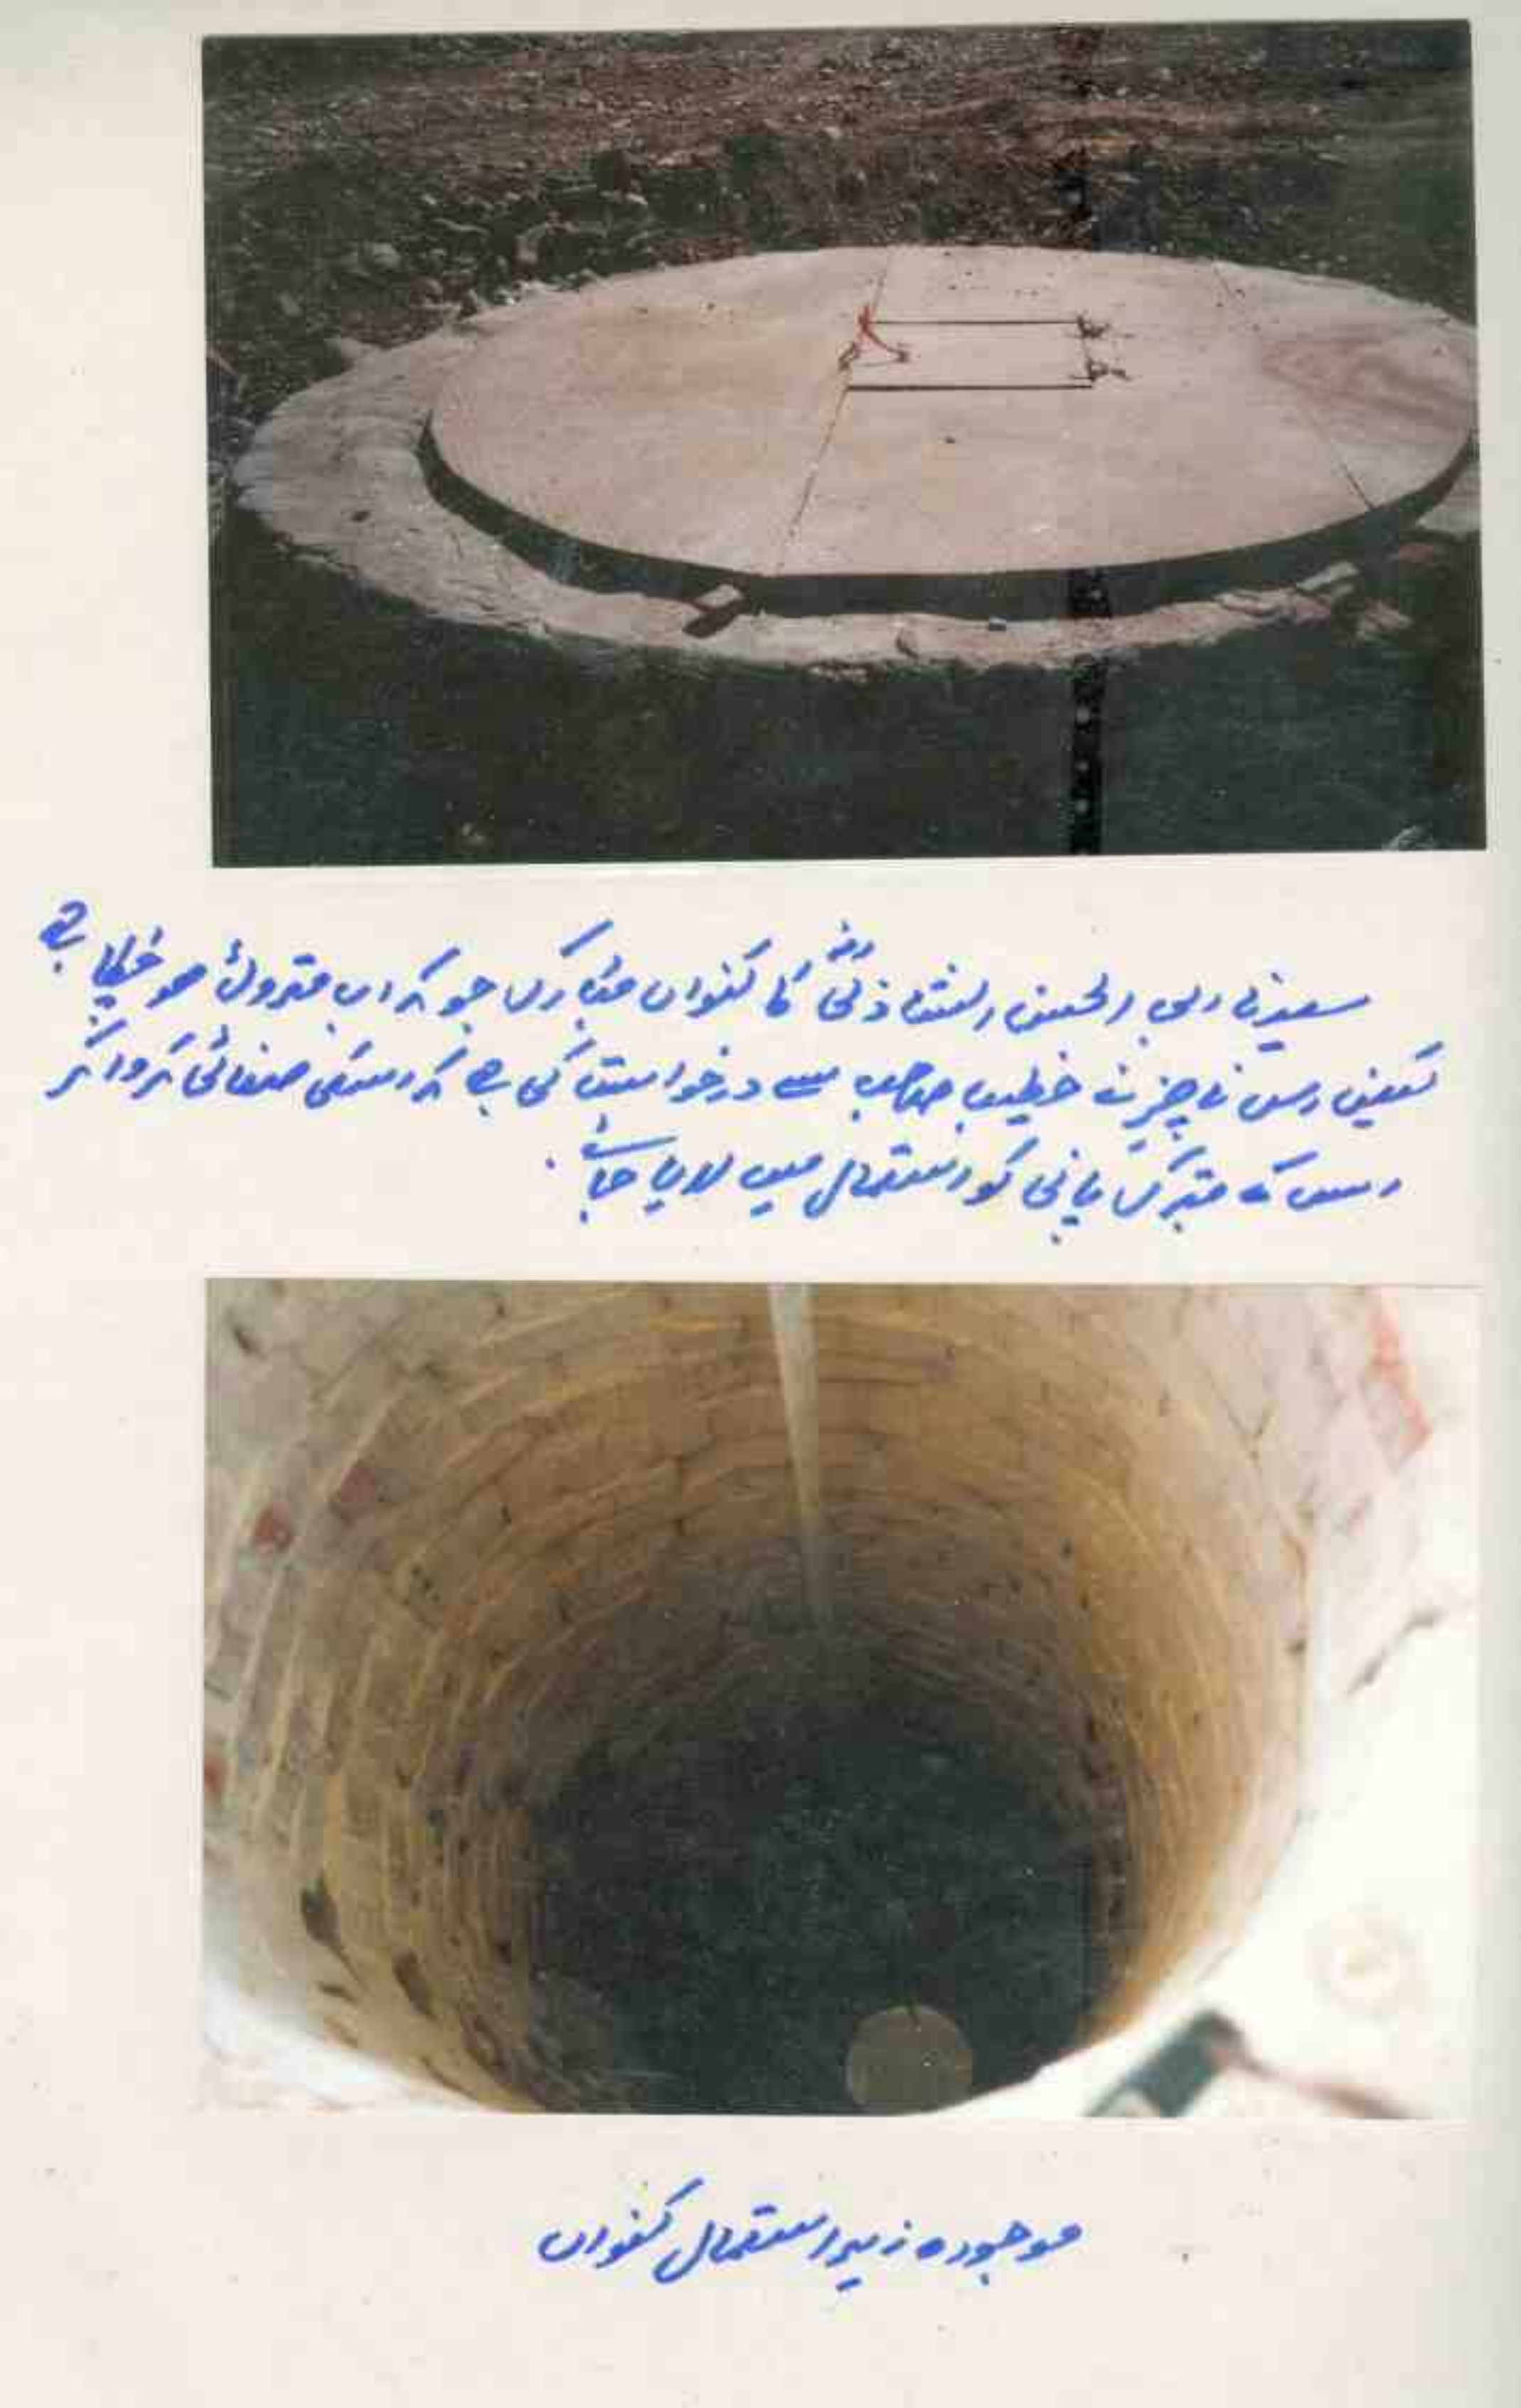 سیدنا ابی الحسن الشاذلیؒ کا کنواں مبارک جو کہ اب متروک ہو چکا ہے
لیکن اس ناچیز نے خطیب صاحب سے درخواست کی ہے کہ اسکی صفائی کروا کر
اس کے متبرک پانی کو استعمال میں لایا جائے۔
موجودہ زیر استعمال کنواں